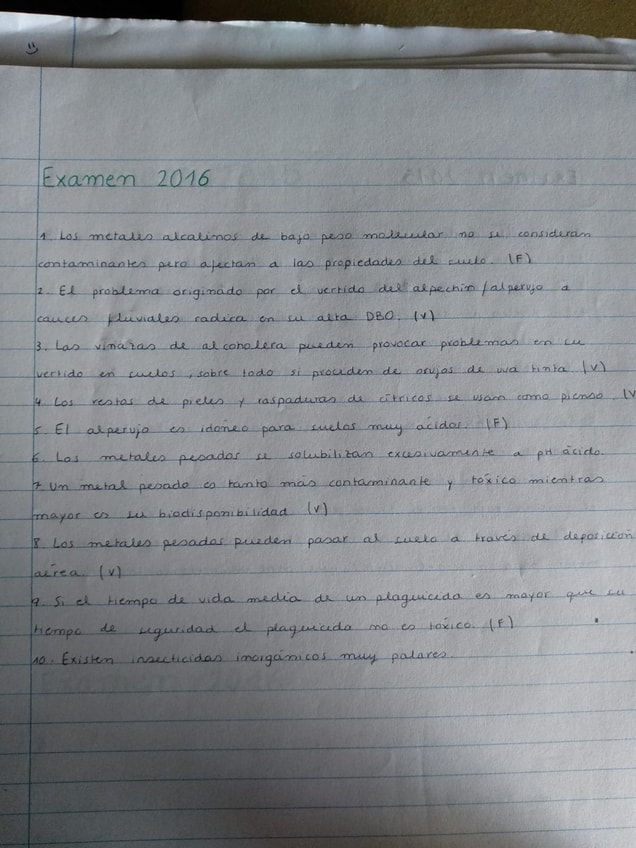 Examen 2016
1. Los metales alcalinos de bajo peso molecular no se consideran
contaminantes pero afectan a las propiedades del suelo. (F)
2. El problema originado por el vertido del alpechín/alperujo a
cauces fluviales radica en su alta DBO. (V)
3. Las vinazas de alcoholera pueden provocar problemas en su
vertido en suelos, sobre todo si proceden de orujos de uva tinta (V)
4. Los restos de pieles y raspaduras de cítricos se usan como pienso. (V
5. El alperujo es idóneo para suelos muy ácidos. (F)
6. Los metales pesados se solubilizan excesivamente a pH ácido.
7. Un metal pesado es tanto más contaminante y tóxico mientras
mayor es su biodisponibilidad (V)
8. Los metales pesados pueden pasar al suelo a través de deposición
aérea. (V)
9. Si el tiempo de vida media de un plaguicida es mayor que su
tiempo de seguridad el plaguicida no es tóxico. (F)
10. Existen insecticidas inorgánicos muy polares.